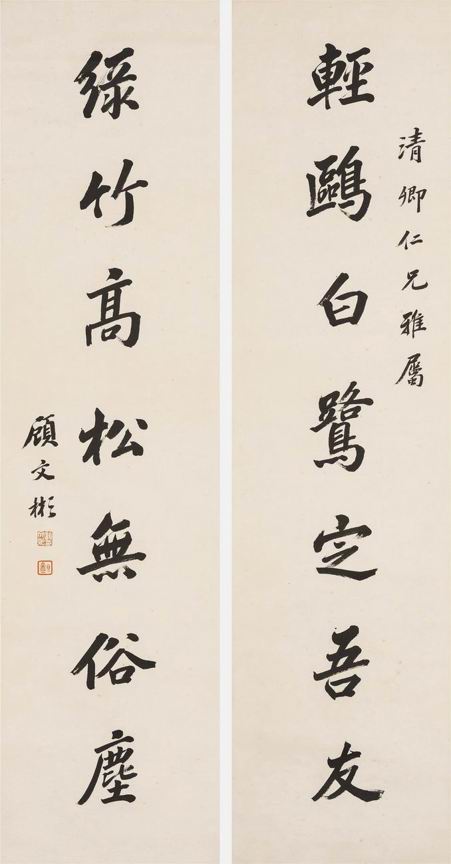 清卿仁兄雅屬
輕鷗白鷺定吾友
綠竹高松無俗塵
顧文彬